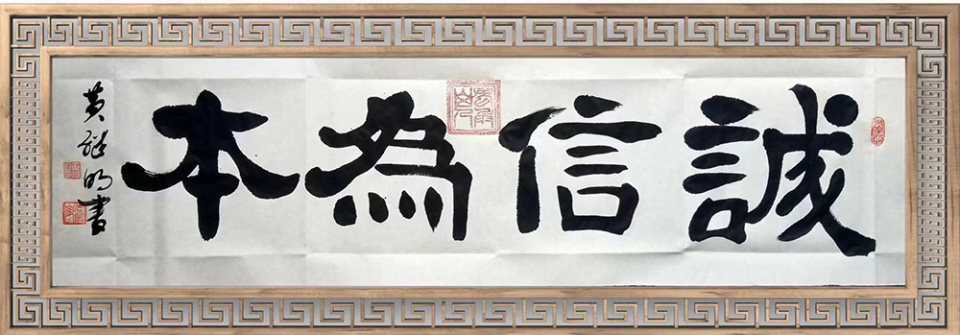 誠信為本
黄继明書